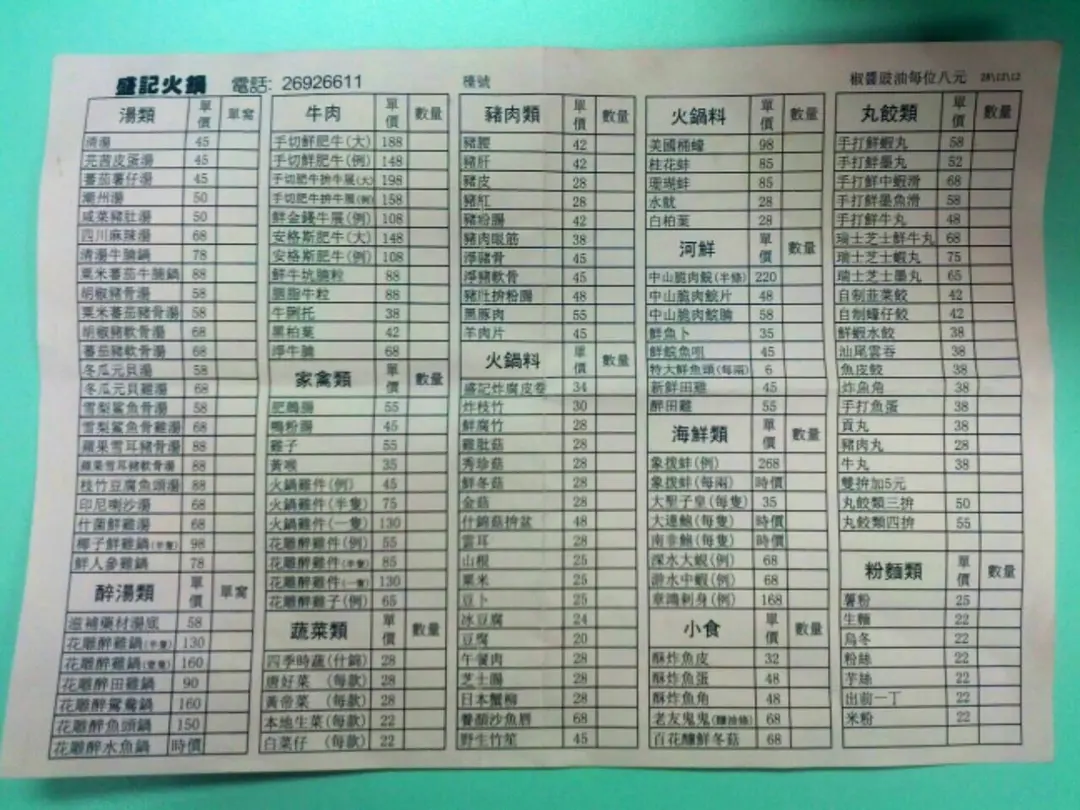 盛記火鍋 電話: 26926611 檯號 椒醬豉油每位八元
湯類 單價 單窩
清湯 45
芫茜皮蛋湯 45
蕃茄薯仔湯 45
潮州湯 50
咸菜豬肚湯 50
四川麻辣湯 68
清湯牛腩鍋 78
粟米蕃茄牛腩鍋 88
胡椒豬骨湯 58
粟米蕃茄豬骨湯 58
胡椒豬軟骨湯 68
蕃茄豬軟骨湯 68
冬瓜元貝湯 58
冬瓜元貝雞湯 68
雪梨鯊魚骨湯 58
雪梨鯊魚骨雞湯 68
蘋果雪耳豬骨湯 88
蘋果雪耳豬軟骨湯 88
枝竹豆腐魚頭湯 88
印尼喇沙湯 68
什菌鮮雞湯 68
椰子鮮雞鍋(半隻) 98
鮮人參雞鍋 78
醉湯類 單價 單窩
滋補藥材湯底 58
花雕醉雞鍋(半隻) 130
花雕醉雞鍋(壹隻) 160
花雕醉田雞鍋 90
花雕醉鴛鴦鍋 160
花雕醉魚頭鍋 150
花雕醉水魚鍋 時價
牛肉 單價 數量
手切鮮肥牛(大) 188
手切鮮肥牛(例) 148
手切肥牛拚牛展(大) 198
手切肥牛拚牛展(例) 158
鮮金錢牛展(例) 108
安格斯肥牛(大) 148
安格斯肥牛(例) 108
鮮牛坑腩粒 88
胭脂牛粒 88
牛脷托 38
黑柏葉 42
淨牛腩 68
家禽類 單價 數量
肥鵝腸 55
鴨粉腸 45
雞子 55
黃喉 35
火鍋雞件(例) 45
火鍋雞件(半隻) 75
火鍋雞件(一隻) 130
花雕醉雞件(例) 55
花雕醉雞件(半隻) 85
花雕醉雞件(一隻) 130
花雕醉雞子(例) 65
蔬菜類 單價 數量
四季時蔬(什錦) 28
唐好菜 (每款) 28
黃帝菜 (每款) 28
本地生菜(每款) 22
白菜仔 (每款) 22
豬肉類 單價 數量
豬腰 42
豬肝 42
豬皮 28
豬紅 28
豬粉腸 42
豬肉眼筋 38
淨豬骨 45
淨豬軟骨 45
豬肚拚粉腸 48
黑豚肉 55
羊肉片 45
火鍋料 單價 數量
盛記炸腐皮卷 34
炸枝竹 30
鮮腐竹 28
雞肶菇 28
秀珍菇 28
鮮冬菇 28
金菇 28
什錦菇拚盆 48
雲耳 28
山根 25
粟米 25
豆卜 25
冰豆腐 24
豆腐 20
午餐肉 28
芝士腸 28
日本蟹柳 28
養顏沙魚唇 68
野生竹笙 45
火鍋料 單價 數量
美國桶蠔 98
桂花蚌 85
珊瑚蚌 85
水魷 28
白柏葉 28
河鮮 單價 數量
中山脆肉鯇(半條) 220
中山脆肉鯇片 48
中山脆肉鯇腩 58
鮮魚卜 35
鮮鯇魚咀 45
特大鮮魚頭(每兩) 6
新鮮田雞 45
醉田雞 55
海鮮類 單價 數量
象拔蚌(例) 268
象拔蚌(每兩) 時價
大聖子皇(每隻) 35
大連鮑(每隻) 時價
南非鮑(每隻) 時價
深水大蜆(例) 68
游水中蝦(例) 68
章鴻刺身(例) 168
小食 單價 數量
酥炸魚皮 32
酥炸魚蛋 48
酥炸魚角 48
老友鬼鬼(釀油條) 68
百花釀鮮冬菇 68
丸餃類 單價 數量
手打鮮蝦丸 58
手打鮮墨丸 52
手打鮮中蝦滑 68
手打鮮墨魚滑 58
手打鮮牛丸 48
瑞士芝士鮮牛丸 68
瑞士芝士蝦丸 75
瑞士芝士墨丸 65
自制韮菜餃 42
自制蠔仔餃 42
鮮蝦水餃 38
汕尾雲吞 38
魚皮餃 38
炸魚角 38
手打魚蛋 38
貢丸 38
豬肉丸 28
牛丸 38
雙拚加5元
丸餃類三拚 50
丸餃類四拚 55
粉麵類 單價 數量
薯粉 25
生麵 22
烏冬 22
粉絲 22
芋絲 22
出前一丁 22
米粉 22